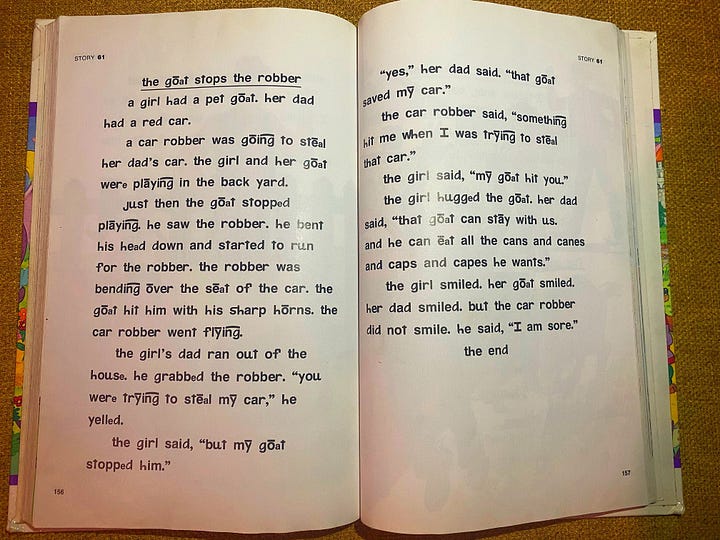 STORY 61
the gōat stops the robber
a girl had a pet gōat. her dad
had a red car.
a car robber was gōing to stēal
her dad's car. the girl and her gōat
were plāying in the back yard.
just then the gōat stopped
plāying. he saw the robber. he bent
his head down and started to run
for the robber. the robber was
bending ōver the sēat of the car. the
gōat hit him with his sharp hōrns. the
car robber went flȳing.
the girl's dad ran out of the
house. he grabbed the robber. "you
were trȳing to stēal mȳ car," he
yelled.
the girl said, "but mȳ gōat
stopped him."
156
STORY 61
"yes," her dad said. "that gōat
saved mȳ car."
the car robber said, "something
hit me when I was trȳing to stēal
that car."
the girl said, "mȳ gōat hit you."
the girl hugged the gōat. her dad
said, "that gōat can stāy with us.
and he can ēat all the cans and canes
and caps and capes he wants."
the girl smiled. her gōat smiled.
her dad smiled. but the car robber
did not smile. he said, "I am sore."
the end
157